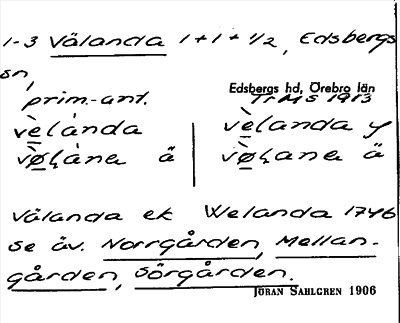 1-3 Välanda 1+1+1/2, Edsbergs
sn,
Edsbergs hd, Örebro län
prim.-ant. TrMS 1913
vèlánda vèlanda y
vø̀ḷàna ä vø̀ḷana ä
Välanda ek Welanda 1746
se äv. Norrgården, Mellan-
gården, Sörgården.
JÖRAN SAHLGREN 1906